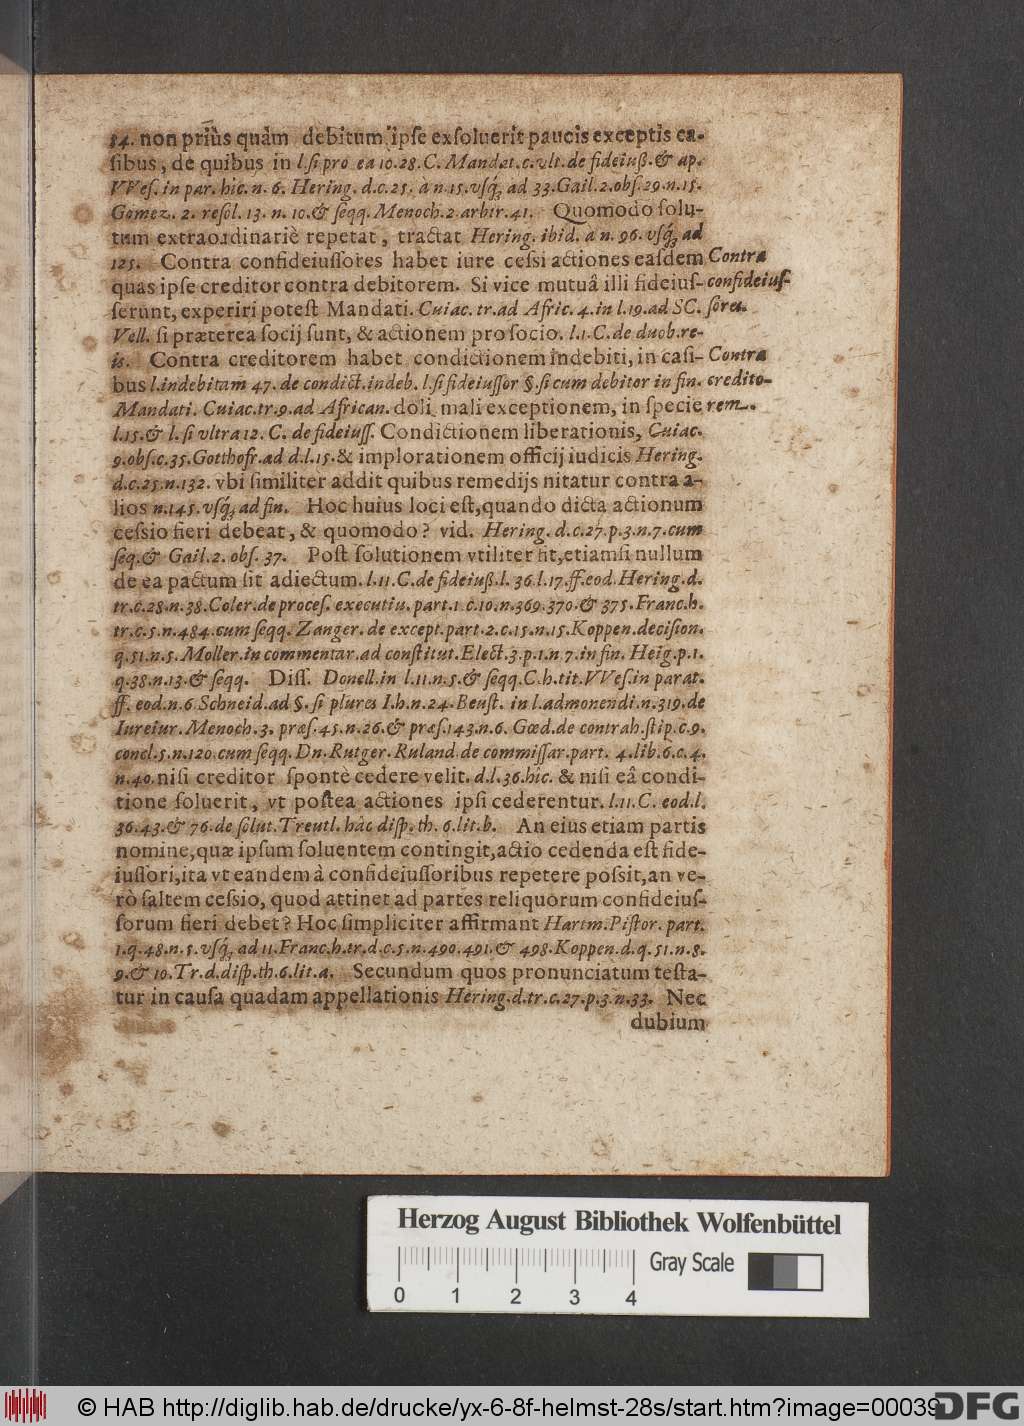 84. non priùs quàm debitum ipſe exſoluerit paucis exceptis ca-
ſibus, de quibus in l. ſi pro ea 10. 28. C. Mandat. c. vlt. de fideiuß. & ap.
VVeſ. in par. hîc. n. 6. Hering. d. c. 25. à n. 15. vſq́; ad 33. Gail. 2. obſ. 29. n. 15.
Gomez. 2. reſol. 13. n. 10. & ſeqq. Menoch. 2. arbitr. 41. Quomodo ſolu-
tum extraordinariè repetat, tractat Hering. ibid. à n. 96. vſq́; ad
125. Contra confideiuſſores habet iure ceſsi actiones eaſdem
Contra confideiuſ-
ſores.
quas ipſe creditor contra debitorem. Si vice mutuâ illi fideiuſ-
ſerunt, experiri poteſt Mandati. Cuiac. tr. ad Afric. 4. in l. 19. ad SC.
Vell. ſi præterea ſocij ſunt, & actionem pro ſocio. l. 1. C. de duob. re-
is. Contra creditorem habet condictionem indebiti, in caſi-
Contra
credito-
rem.
bus l. indebitam 47. de condict. indeb. l. ſi fideiuſſor §. ſi cum debitor in fin.
Mandati. Cuiac. tr. 9. ad African. doli mali exceptionem, in ſpecie
l. 15. & l. ſi vltra 12. C. de fideiuſſ. Condictionem liberationis, Cuiac.
9. obſ. c. 35. Gotthofr. ad d. l. 15. & implorationem officij iudicis Hering.
d. c. 25. n. 132. vbi ſimiliter addit quibus remedijs nitatur contra a-
lios n. 145. vſq́; ad fin. Hoc huius loci eſt, quando dicta actionum
ceſsio fieri debeat, & quomodo? vid. Hering. d. c. 27. p. 3. n. 7. cum
ſeq. & Gail. 2. obſ. 37. Poſt ſolutionem vtiliter fit, etiamſi nullum
de ea pactum ſit adiectum. l. 11. C. de fideiuß. l. 36. l. 17. ff. eod. Hering. d.
tr. c. 28. n. 38. Coler. de proceſ. executiu. part. 1. c. 10. n. 369. 370. & 375. Franc. h.
tr. c. 5. n. 484. cum ſeqq. Zanger. de except. part. 2. c. 15. n. 15. Koppen. deciſion.
q. 51. n. 5. Moller. in commentar. ad conſtitut. Elect. 3. p. 1. n. 7. in fin. Heig. p. 1.
q. 38. n. 13. & ſeqq. Diſſ. Donell. in l. 11. n. 5. & ſeqq. C. h. tit. VVeſ. in parat.
ff. eod. n. 6. Schneid. ad §. ſi plures I. h. n. 24. Beuſt. in l. admonendi. n. 319. de
Iureiur. Menoch. 3. præſ. 45. n. 26. & præſ. 143. n. 6. Gœd. de contrah. ſtip. c. 9.
concl. 5. n. 120. cum ſeqq. Dn. Rutger. Ruland de commiſſar. part. 4. lib. 6. c. 4.
n. 40. niſi creditor ſpontè cedere velit. d. l. 36. hîc. & niſi eâ condi-
tione ſoluerit, vt poſtea actiones ipſi cederentur. l. 11. C. eod. l.
36. 43. & 76. de ſolut. Treutl. hâc diſp. th. 6. lit. b. An eius etiam partis
nomine, quæ ipſum ſoluentem contingit, actio cedenda eſt fide-
iuſſori, ita vt eandem à confideiuſſoribus repetere poſsit, an ve-
rò ſaltem ceſsio, quod attinet ad partes reliquorum confideiuſ-
ſorum fieri debet? Hoc ſimpliciter affirmant Hartm. Piſtor. part.
1. q. 48. n. 5. vſq́; ad 11. Franc. h. tr. d. c. 5. n. 490. 491. & 498. Koppen. d. q. 51. n. 8.
9. & 10. Tr. d. diſp. th. 6. lit. a. Secundum quos pronunciatum teſta-
tur in cauſa quadam appellationis Hering. d. tr. c. 27. p. 3. n. 33. Nec
dubium
Herzog August Bibliothek Wolfenbüttel
Gray Scale
0 1 2 3 4
© HAB http://diglib.hab.de/drucke/yx-6-8f-helmst-28s/start.htm?image=00039
DFG